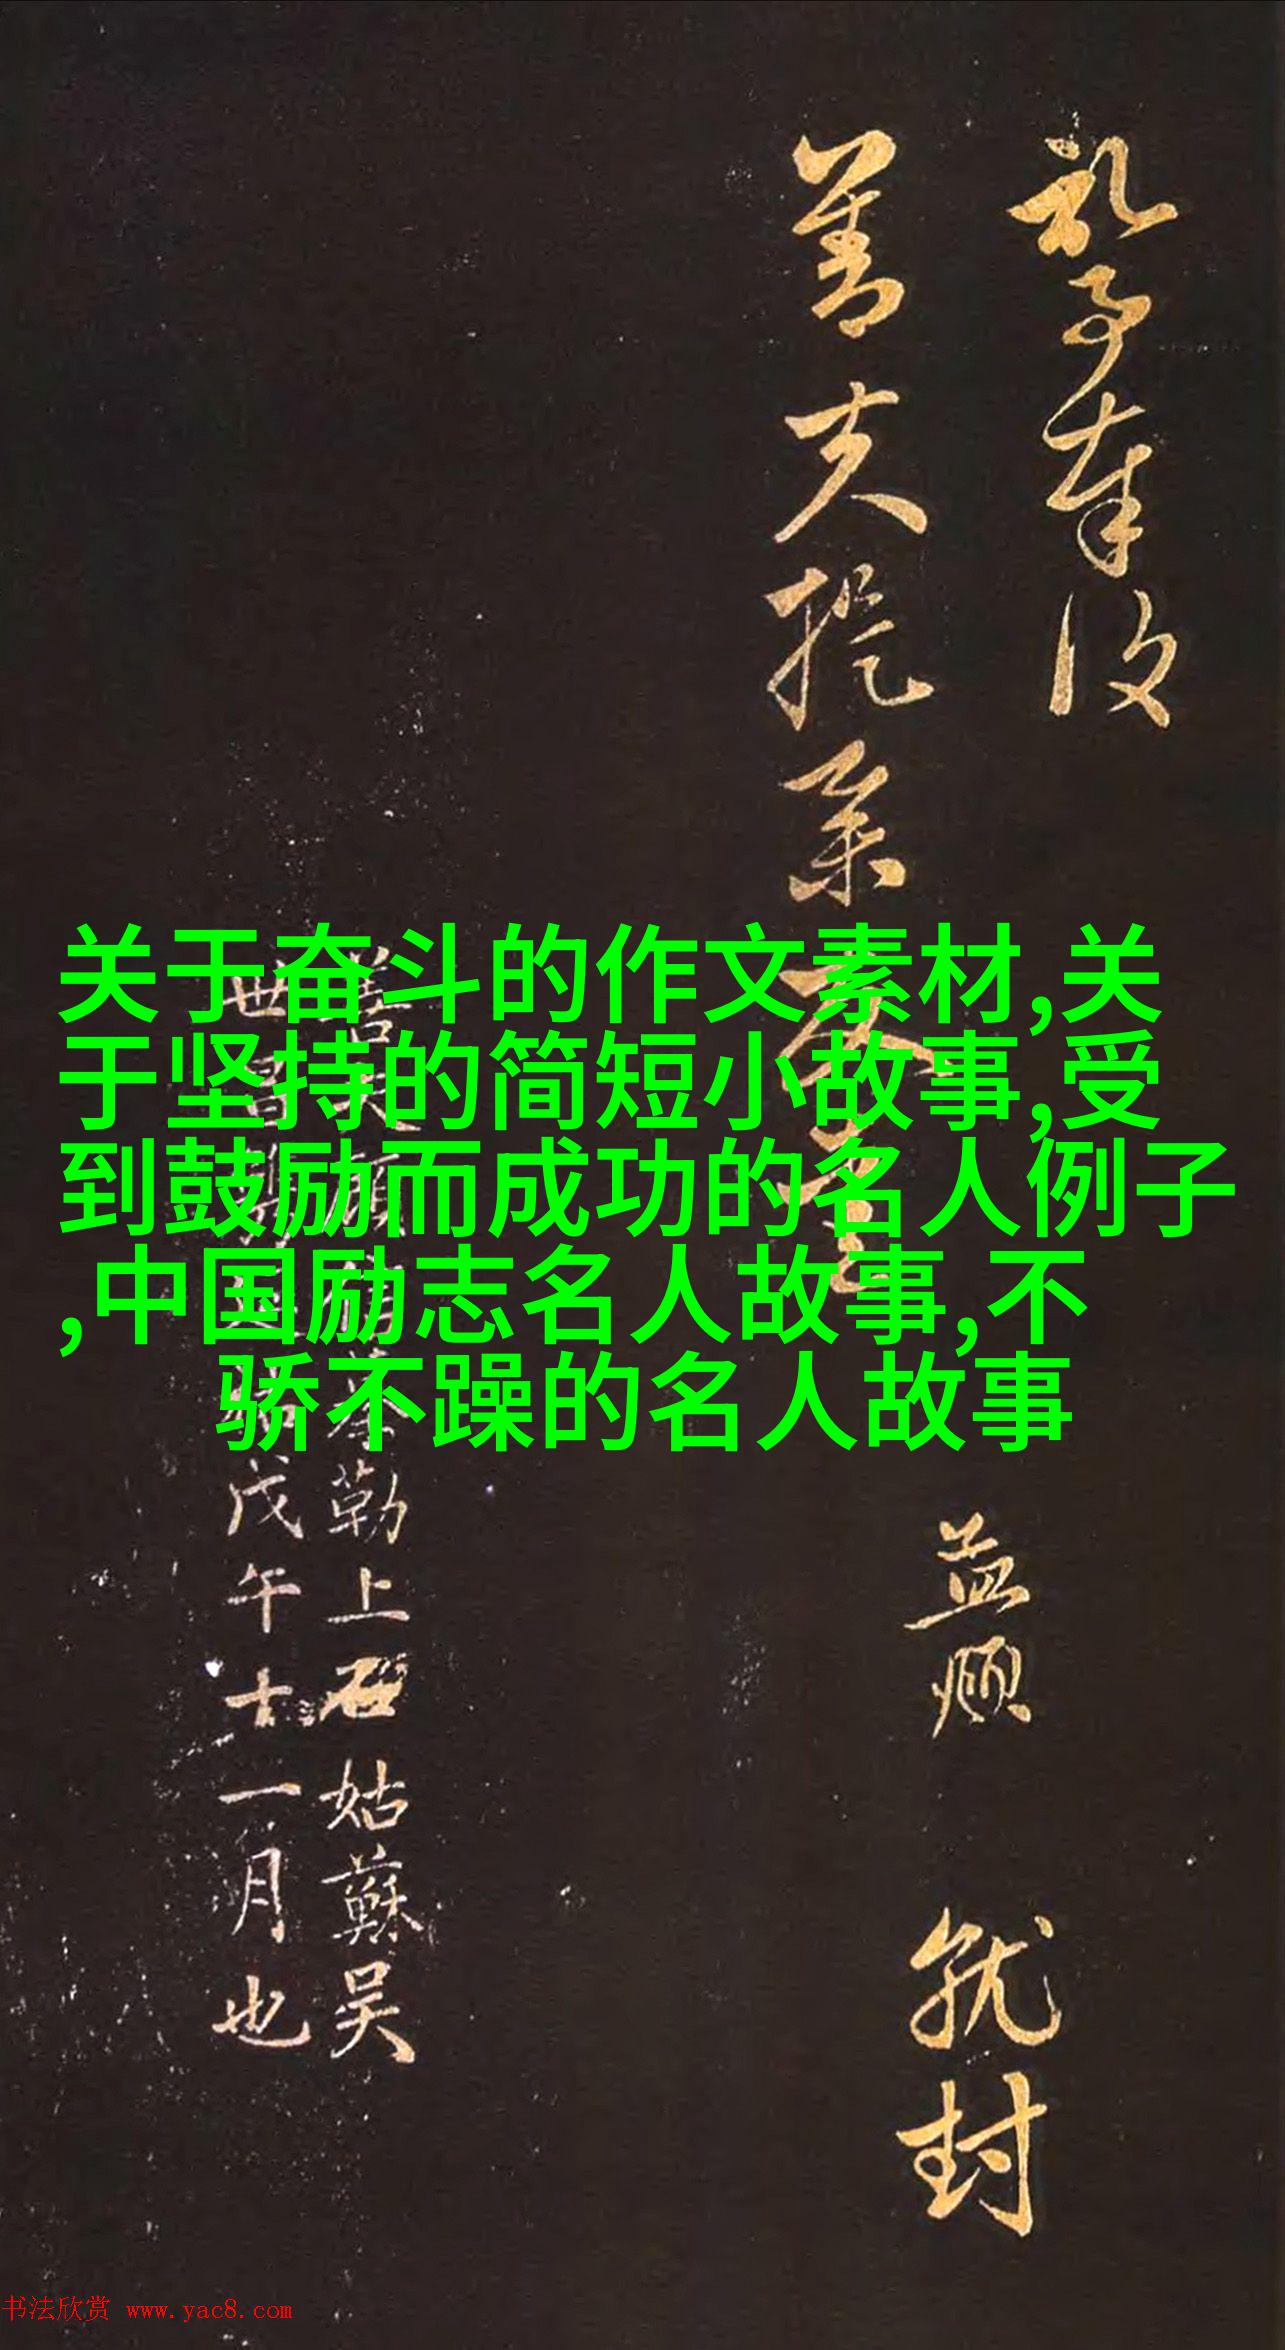 礼事奉后
善夫提举
益顺
就封
勒上石姑蘇吴
戊午十一月也
关于奋斗的作文素材,关
于坚持的简短小故事,受
到鼓励而成功的名人例子
,中国励志名人故事,不
骄不躁的名人故事
书法欣赏 www.yac8.com